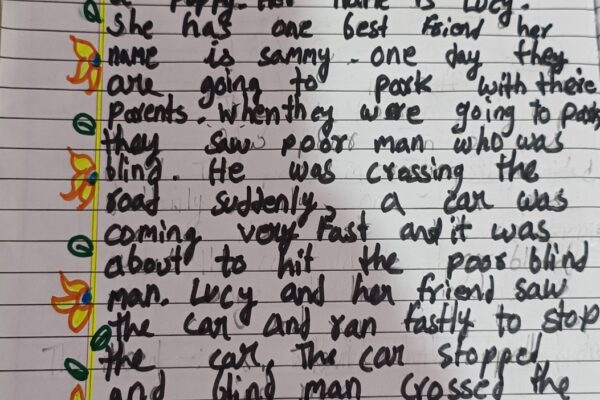 a puppy. Her name is Lucy.
She has one best friend her
name is sammy. one day they
are going to park with theire
parents. when they were going to park
they saw poor man who was
bling. He was crassing the
road suddenly, a car was
coming very fast and it was
about to hit the poor blind
man. Lucy and her friend saw
the car and ran fastly to stop
the car. The car stopped
and blind man crossed the